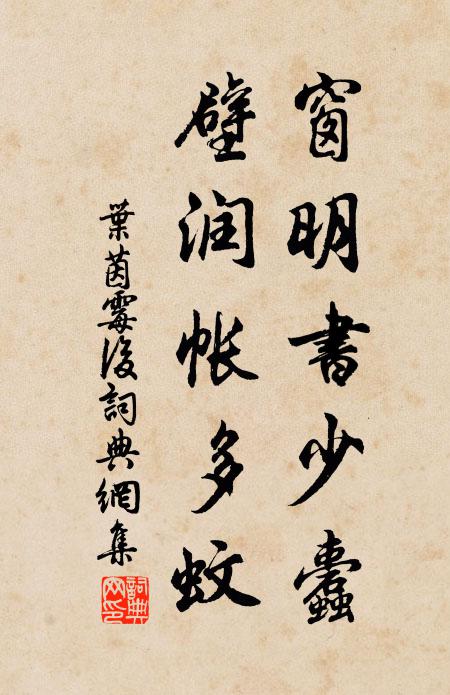 窗明書少蠹
壁润帐多蚊
葉茵霉後詞典網集
詞典